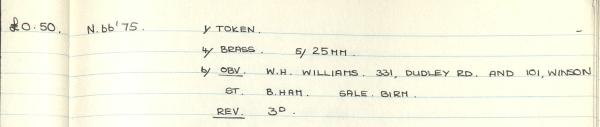 £0.50. N.bb'75. 1/ TOKEN. -
4/ BRASS. 5/ 25MM.
6/ OBV. W.H. WILLIAMS. 331, DUDLEY RD. AND 101, WINSON
ST. B.HAM. SALE. BIRM.
REV. 3D.